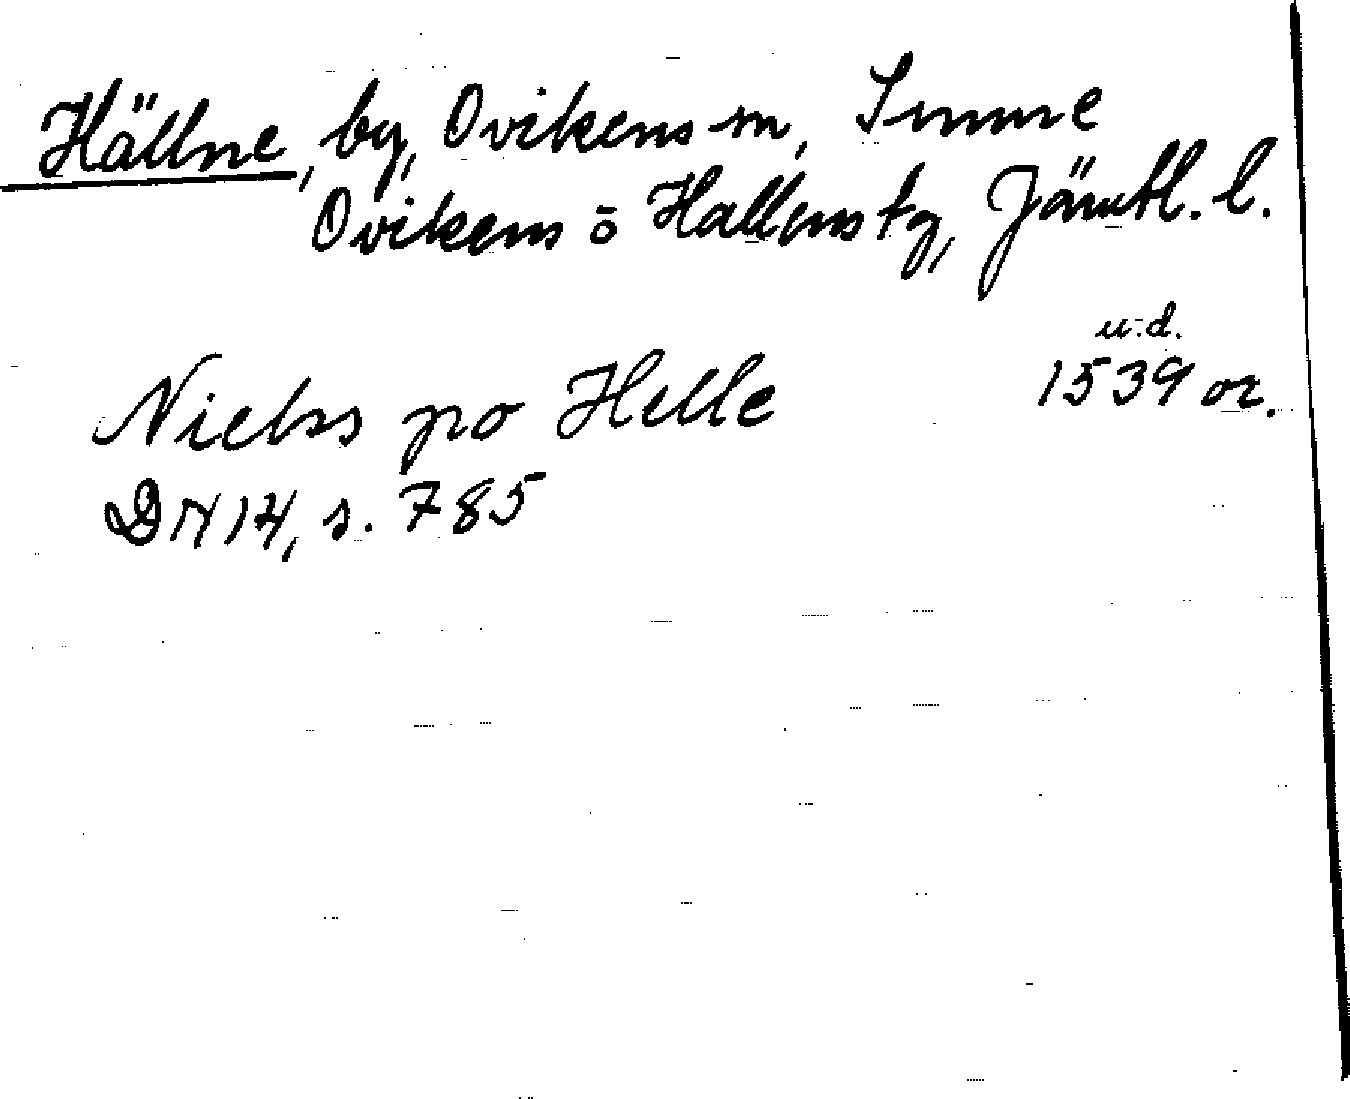 Hällne, by, Ovikens sn, Sunne
Ovikens o Hallens tg, Jämtl. l.
u.d.
Nielss po Helle 1539 or.
DN 14, s. 785